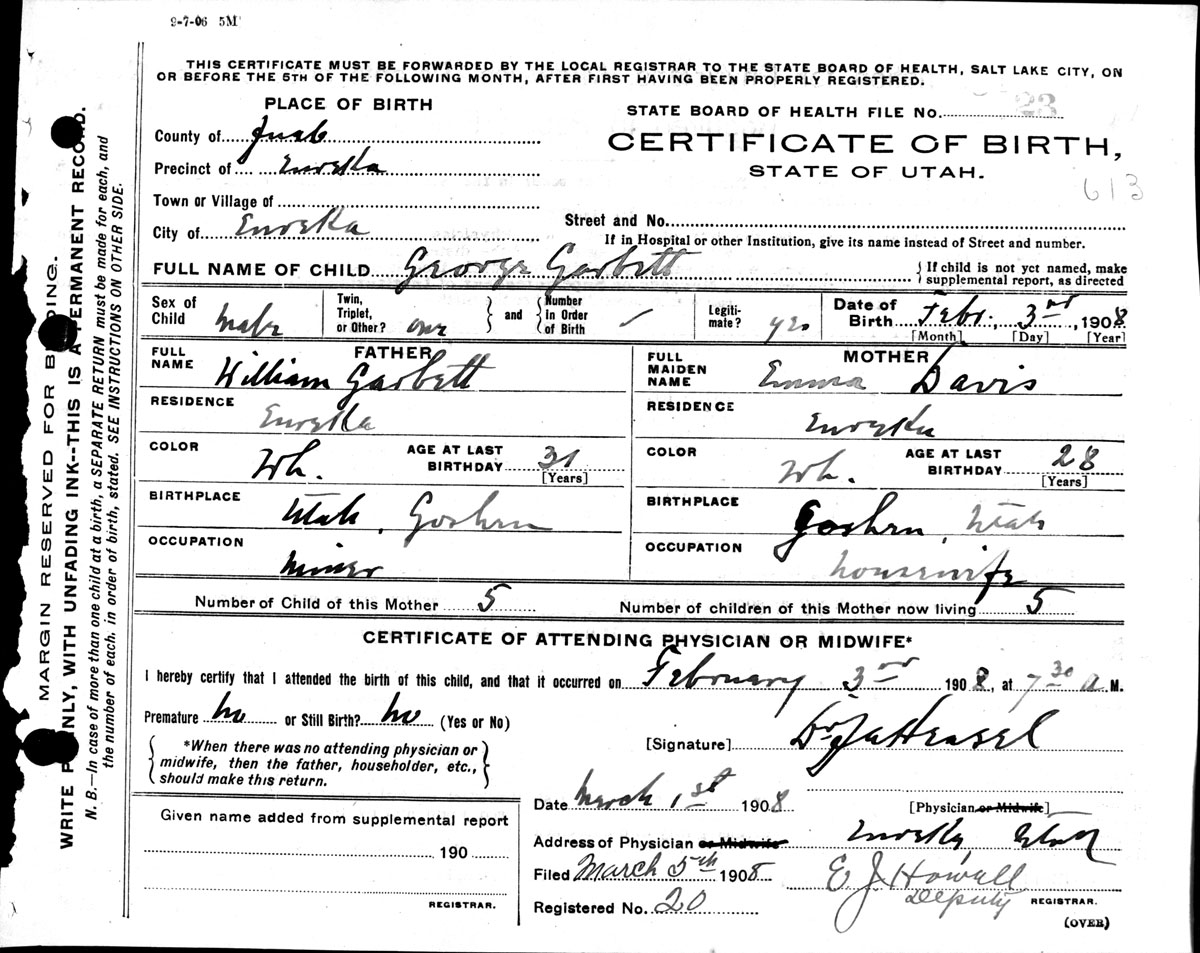 9-7-06 5M
THIS CERTIFICATE MUST BE FORWARDED BY THE LOCAL REGISTRAR TO THE STATE BOARD OF HEALTH, SALT LAKE CITY, ON
OR BEFORE THE 5TH OF THE FOLLOWING MONTH, AFTER FIRST HAVING BEEN PROPERLY REGISTERED.
PLACE OF BIRTH
County of Juab
Precinct of Eureka
Town or Village of
City of Eureka
STATE BOARD OF HEALTH FILE No. 23
CERTIFICATE OF BIRTH,
STATE OF UTAH.
613
Street and No.
If in Hospital or other Institution, give its name instead of Street and number.
FULL NAME OF CHILD George Garbett
If child is not yet named, make
supplemental report, as directed
Sex of Child male
Twin, Triplet, or Other? one
and
Number In Order of Birth ✓
Legiti- mate? yes
Date of Birth Febr. 3rd, 1908
[Month] [Day] [Year]
FATHER
FULL NAME William Garbett
RESIDENCE
Eureka
COLOR Wh.
AGE AT LAST BIRTHDAY 31
[Years]
BIRTHPLACE
Utah, Goshen
OCCUPATION
Miner
MOTHER
FULL MAIDEN NAME Emma Davis
RESIDENCE
Eureka
COLOR Wh.
AGE AT LAST BIRTHDAY 28
[Years]
BIRTHPLACE
Goshen, Utah
OCCUPATION
housewife
Number of Child of this Mother 5 Number of children of this Mother now living 5
CERTIFICATE OF ATTENDING PHYSICIAN OR MIDWIFE*
I hereby certify that I attended the birth of this child, and that it occurred on February 3rd 1908, at 7 30 a M.
Premature no or Still Birth? no (Yes or No)
*When there was no attending physician or
midwife, then the father, householder, etc.,
should make this return.
[Signature] Dr
Given name added from supplemental report
190
REGISTRAR.
Date March 1st 1908
[Physician or Midwife]
Address of Physician or Midwife Eureka, Utah
Filed March 5th 1908 E J Howell
Deputy REGISTRAR.
Registered No. 20
(OVER)
MARGIN RESERVED FOR
WRITE WITH UNFADING INK--THIS IS A PERMANENT RECORD.
N. B.—In case of more than one child at a birth, a SEPARATE RETURN must be made for each, and
the number of each. in order of birth, stated. SEE INSTRUCTIONS ON OTHER SIDE.